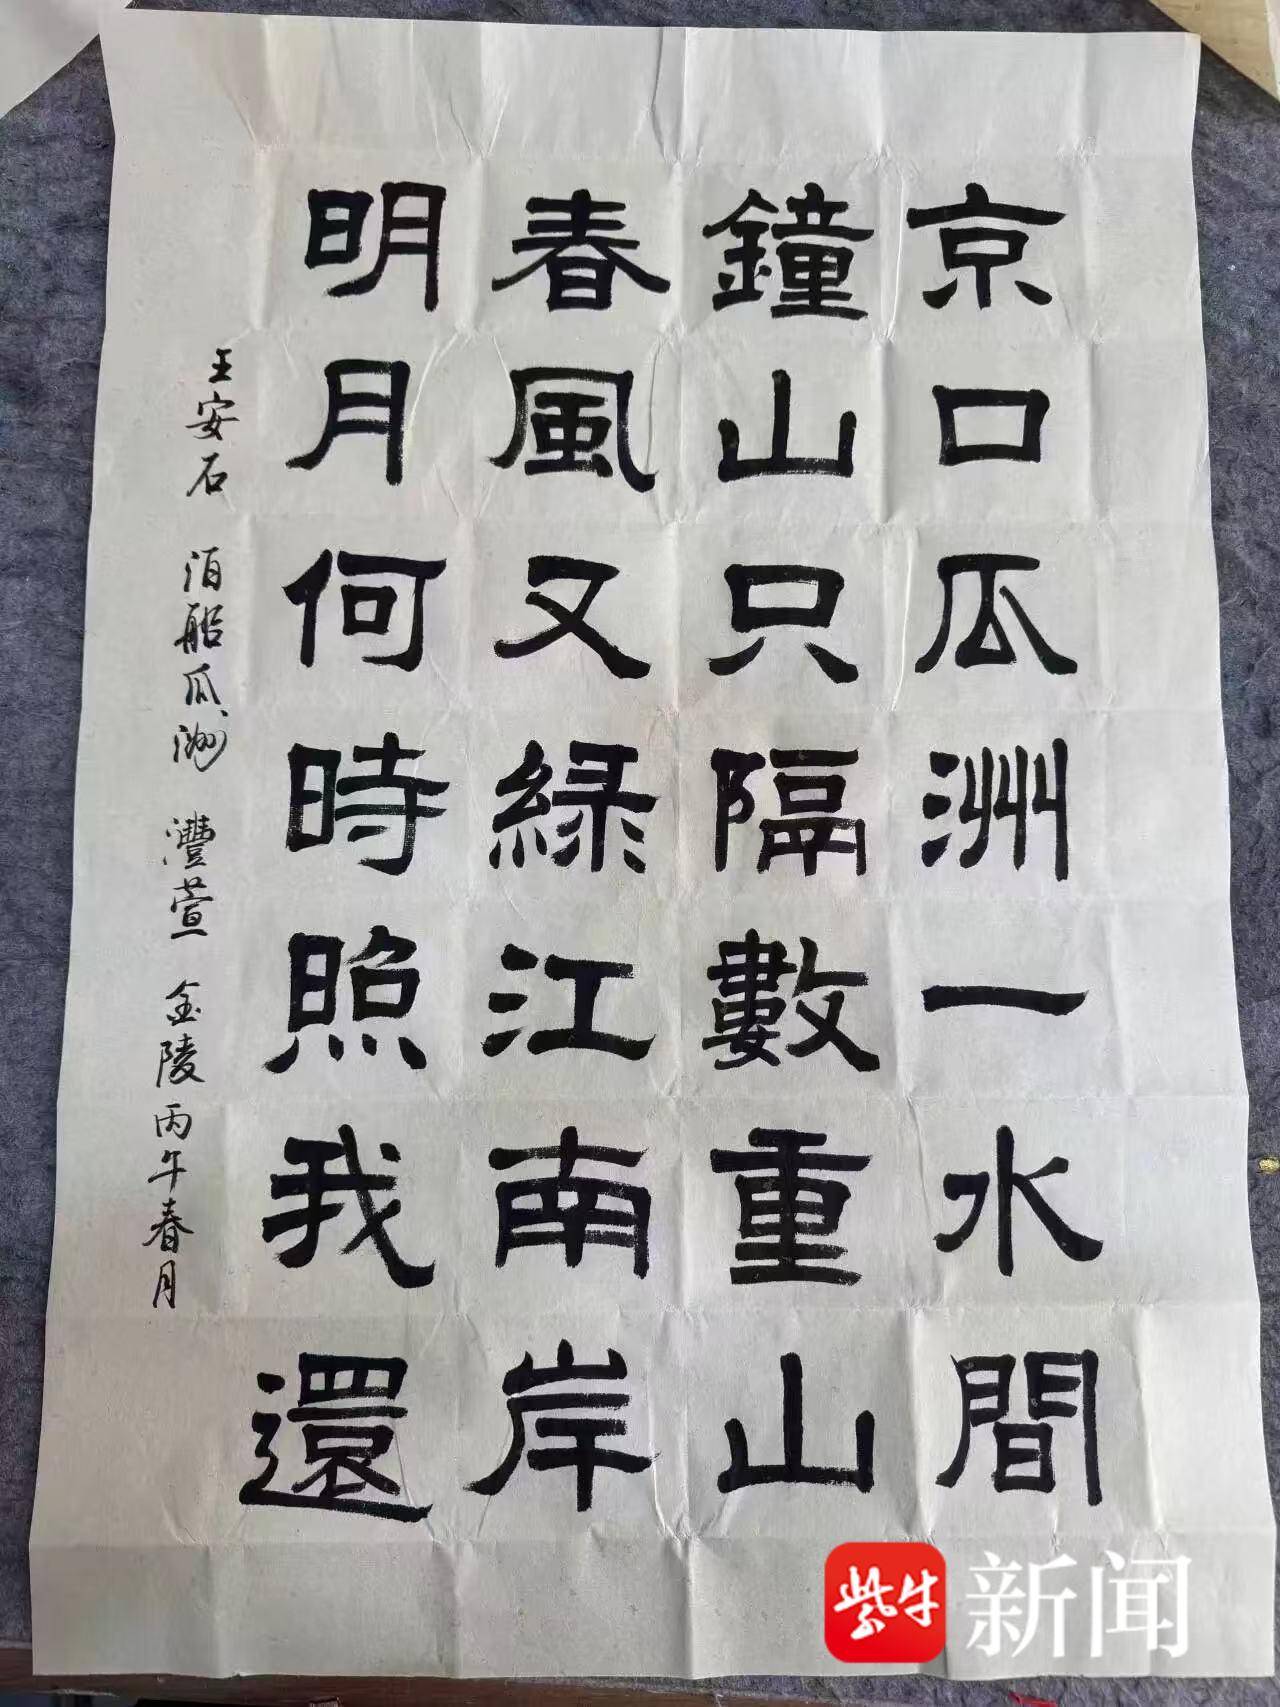 京口瓜洲一水間
鐘山只隔數重山
春風又緑江南岸
明月何時照我還
王安石 泊船瓜洲 灃萱 金陵丙午春月
紫牛新闻